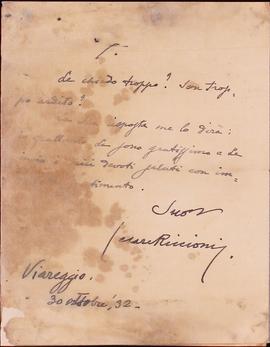 Le chiedo troppo? Son trop-
po ardito?
risposta me lo dirà:
sono gratissimo e Le
devoti saluti con im-
timento.
Suo
Cesare Riccioni
Viareggio.
30 ottobre, 32-